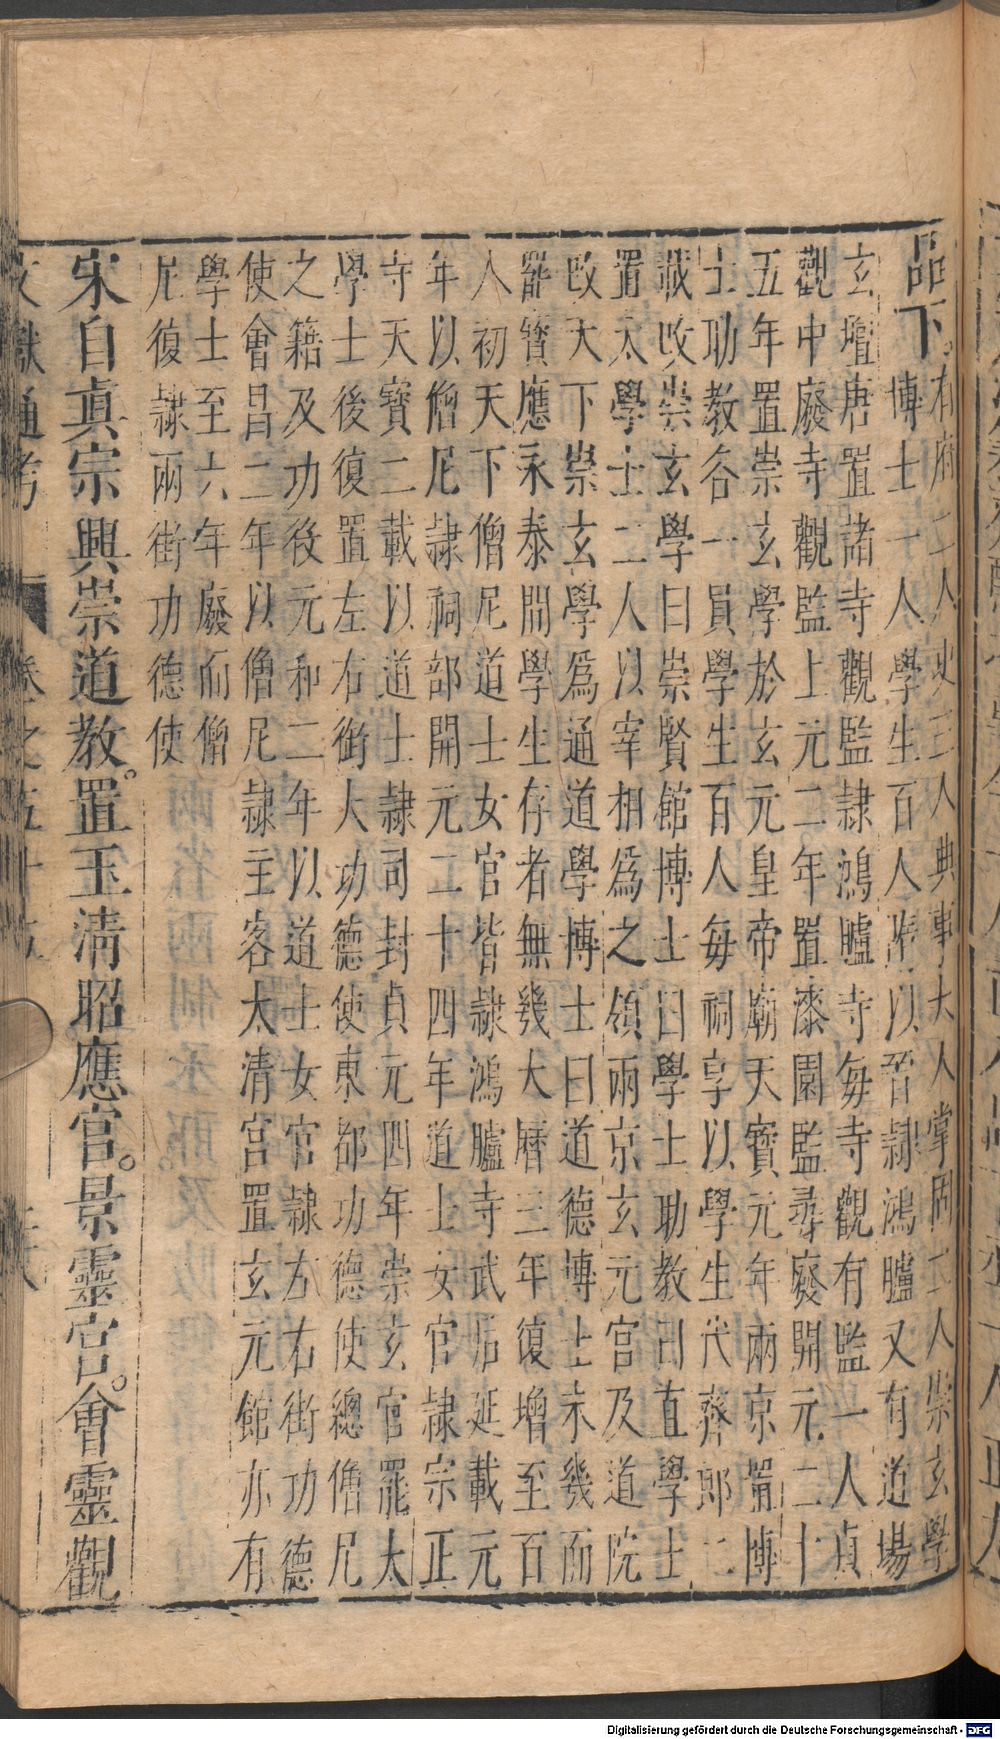 品下有府二人史三人典事六人掌固二人崇玄學
博士一人學生百人隋以署隸鴻臚又有道場
玄壇唐置諸寺觀監隸鴻臚寺每寺觀有監一人貞
觀中廢寺觀監上元二年置漆園監尋廢開元二十
五年置崇玄學於玄元皇帝廟天寶元年兩京置博
士助教各一員學生百人每祠享以學生代齋郎二
載改崇玄學曰崇賢館博士曰學士助教曰直學士
置大學士二人以宰相爲之領兩京玄元宮及道院
改天下崇玄學爲通道學博士曰道德博士未幾而
罷寶應永泰間學生存者無幾大曆三年復增至百
人初天下僧尼道士女官皆隸鴻臚寺武后延載元
年以僧尼隸祠部開元二十四年道士女官隸宗正
寺天寶二載以道士隸司封貞元四年崇玄官罷太
學士後復置左右街大功德使東都功德使總僧尼
之籍及功役元和二年以道士女官隸左右街功德
使會昌二年以僧尼隸主客太清宮置玄元館亦有
學士至六年廢而僧
尼復隸兩街功德使
宋自眞宗興崇道教。置玉清昭應宮。景靈宮。會靈觀
文獻通考 卷之五十五
Digitalisierung gefördert durch die Deutsche Forschungsgemeinschaft - DFG